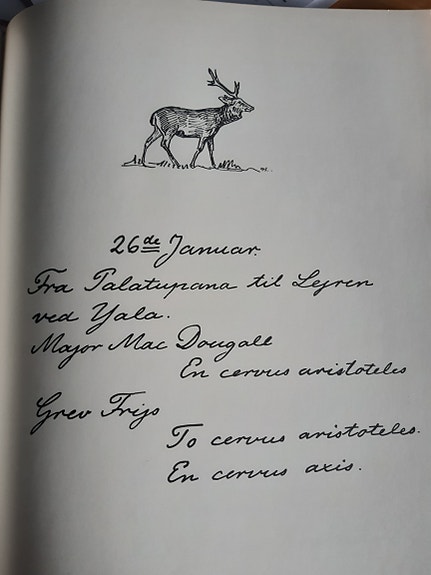 26de Januar.
Fra Palatupana til Lejren
ved Yala.
Major Mac Dougall
En cervus aristoteles
Grev Frijs
To cervus aristoteles.
En cervus axis.